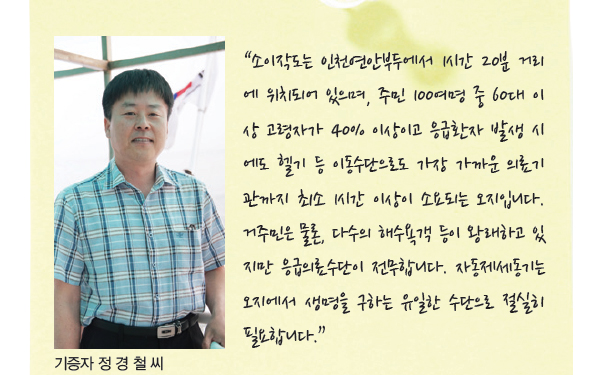 “소이작도는 인천연안부두에서 1시간 20분 거리
에 위치되어 있으며, 주민 100여명 중 60대 이
상 고령자가 40% 이상이고 응급환자 발생 시
에도 헬기 등 이동수단으로도 가장 가까운 의료기
관까지 최소 1시간 이상이 소요되는 오지입니다.
거주민은 물론, 다수의 해수욕객 등이 왕래하고 있
지만 응급의료수단이 전무합니다. 자동제세동기는
오지에서 생명을 구하는 유일한 수단으로 절실히
필요합니다.”
기증자 정 경 철 씨